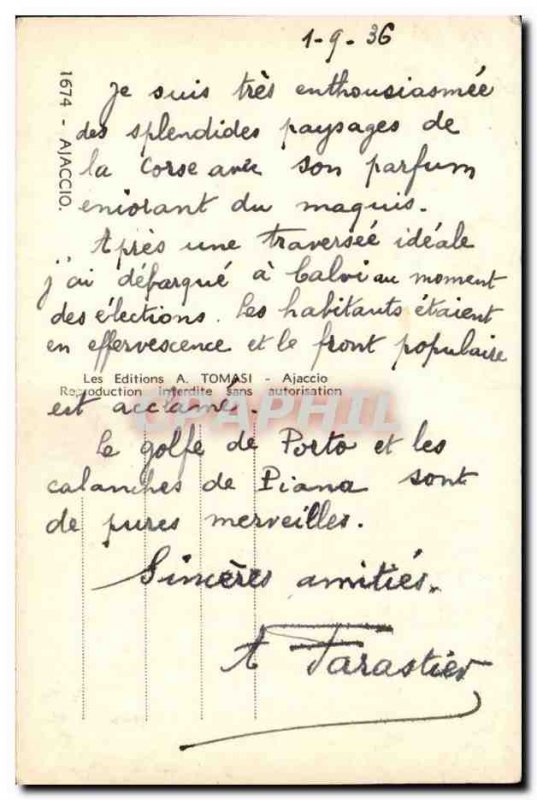 1-9-36
1674 - AJACCIO.
Je suis très enthousiasmée
des splendides paysages de
la Corse avec son parfum
eniorant du maquis.
Après une traversée idéale
j'ai débarqué à Calvi au moment
des élections. Les habitants étaient
en effervescence et le front populaire
Les Editions A. TOMASI - Ajaccio
Reproduction interdite sans autorisation
est acclamé.
CPAPHIL.COM
Le golfe de Porto et les
calanches de Piana sont
de pures merveilles.
Sincères amitiés.
A Tarastier